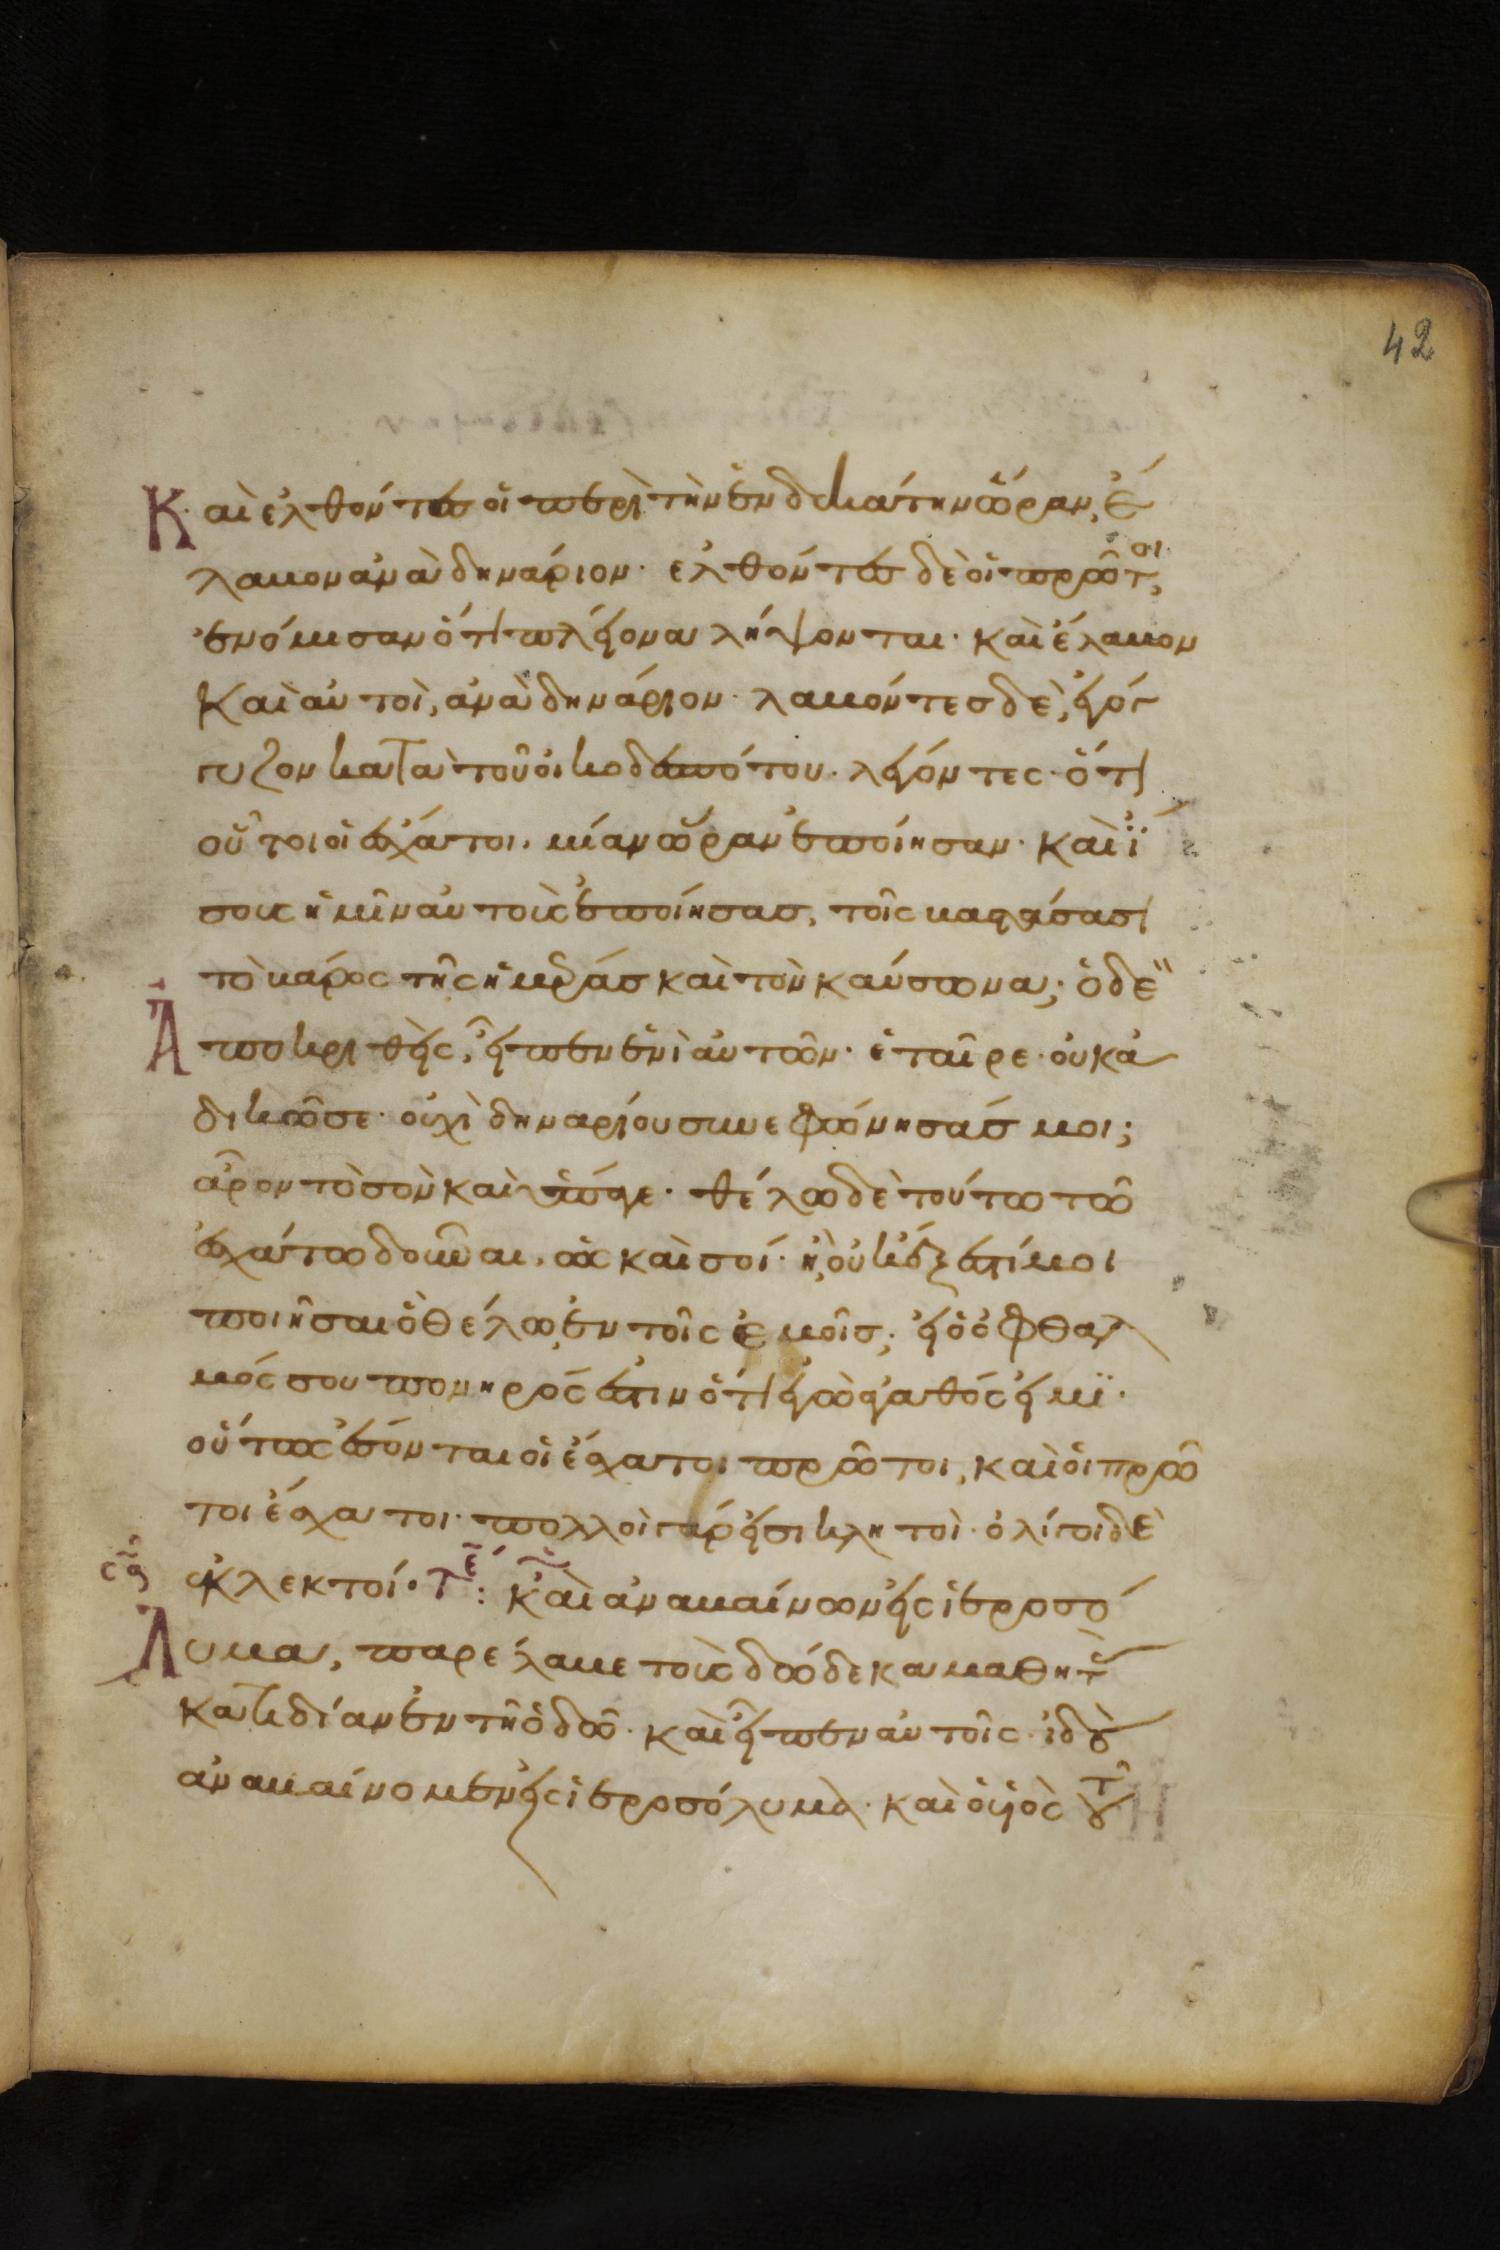 42
Καὶ ἐλθόντες οἱ περὶ τὴν ἑνδεκάτην ὥραν, ἔ
λαβον ἀνὰ δηνάριον· ἐλθόντες δὲ οἱ πρῶτοι,
ἐνόμισαν ὅτι πλείονα λήψονται· καὶ ἔλαβον
καὶ αὐτοὶ, ἀνὰ δηνάριον· λαβόντες δὲ, ἐγόγ
γυζον κατὰ τοῦ οἰκοδεσπότου· λέγοντες· ὅτι
οὗτοι οἱ ἔσχατοι, μίαν ὥραν ἐποίησαν· καὶ ἴ
σους ἡμῖν αὐτοὺς ἐποίησας, τοῖς βαστάσασι
τὸ βάρος τῆς ἡμέρας καὶ τὸν καύσωνα; ὁ δὲ
Ἀποκριθεὶς, εἶπεν ἑνὶ αὐτῶν· ἑταῖρε· οὐκ ἀ
δικῶ σε· οὐχὶ δηναρίου συνεφώνησάς μοι;
ἆρον τὸ σὸν καὶ ὕπαγε· θέλω δὲ τούτω τῶ
ἐσχάτω δοῦναι, ὡς καὶ σοί· ἢ, οὐκ ἔξεστί μοι
ποιῆσαι ὃ θέλω, ἐν τοῖς ἐμοῖς; εἰ ὁ ὀφθαλ
μός σου πονηρός ἐστιν ὅτι ἐγὼ ἀγαθός εἰμϊ·
οὕτως ἔσονται οἱ ἔσχατοι πρῶτοι, καὶ οἱ πρῶ
τοι ἔσχατοι· πολλοὶ γάρ εἰσι κλητοὶ· ὀλίγοι δὲ
ἐκλεκτοί· τε: καὶ ἀναβαίνων εἰς ἱεροσό
Λυμα, παρέλαβε τοὺς δώδεκα μαθητ
κατιδίαν ἐν τῆ ὁδῶ· καὶ εἶπεν αὐτοῖς· ἰδοὺ
ἀναβαίνομεν εἰς ἱεροσόλυμὰ· καὶ ὁ υἱὸς τοῦ